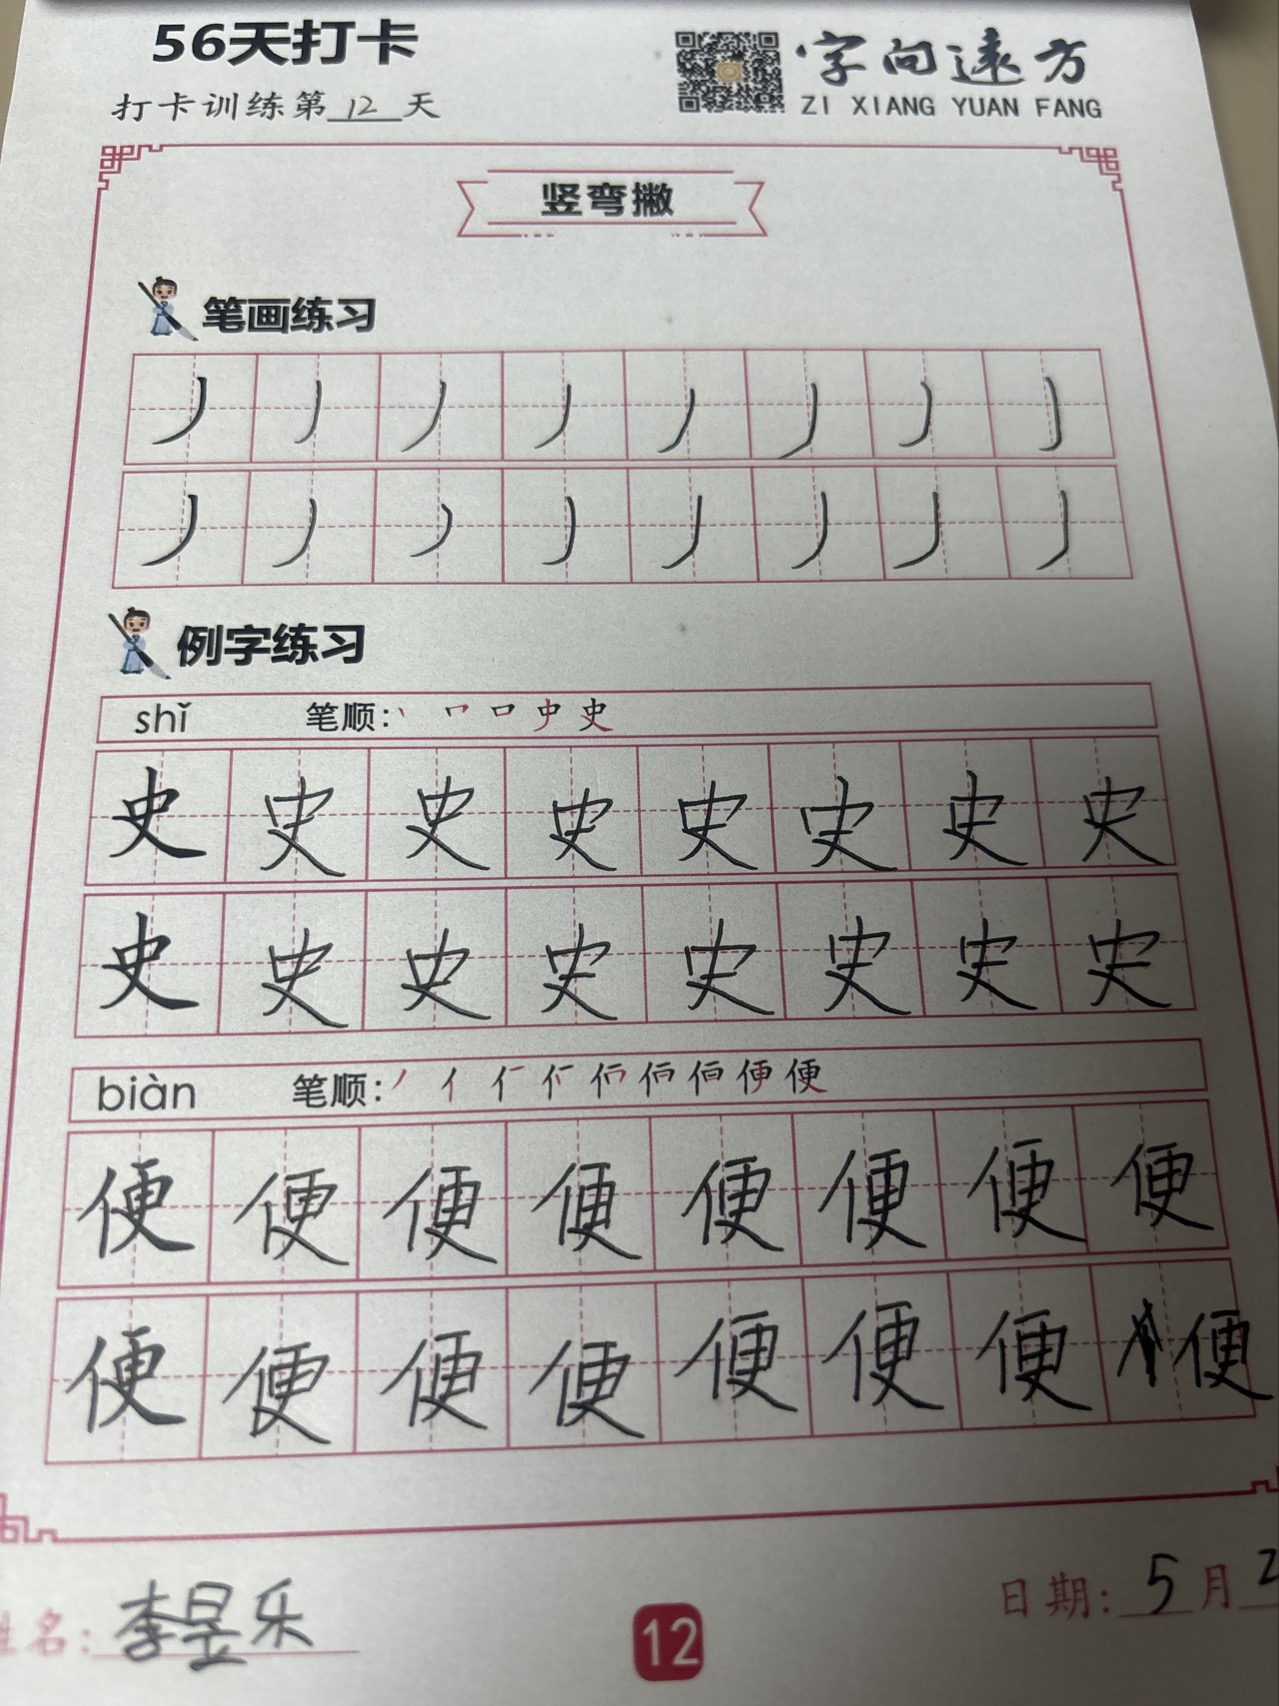 56天打卡
字向远方
打卡训练第12天
ZI XIANG YUAN FANG
竖弯撇
笔画练习
丿丿丿丿丿丿丿丿
丿丿丿丿丿丿丿丿
例字练习
shǐ 笔顺:丶 口 史 史
史史史史史史史史
史史史史史史史史
biàn 笔顺:丿 亻 便
便便便便便便便便
便便便便便便便便
姓名:李昱乐
12
日期:5月2